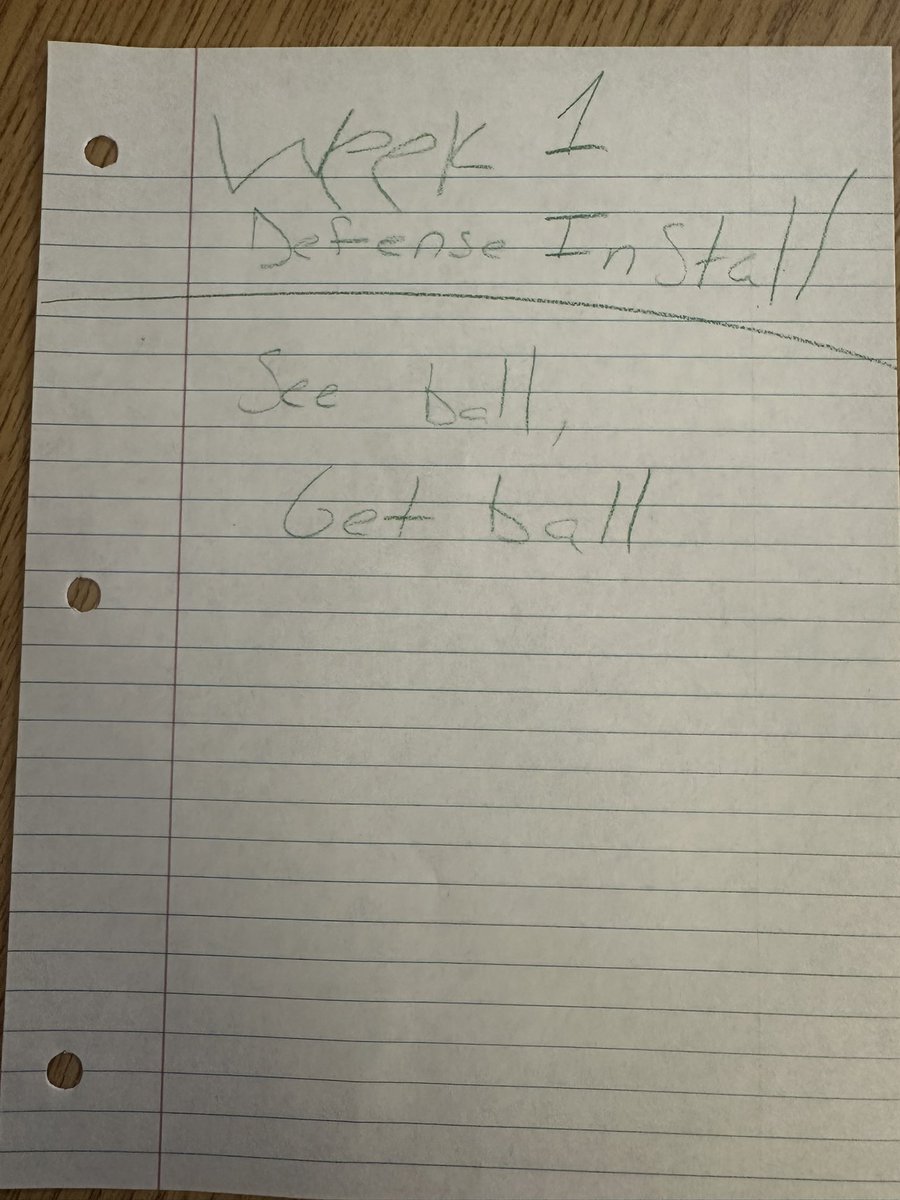 Week 1
Defense Install
See ball,
Get ball